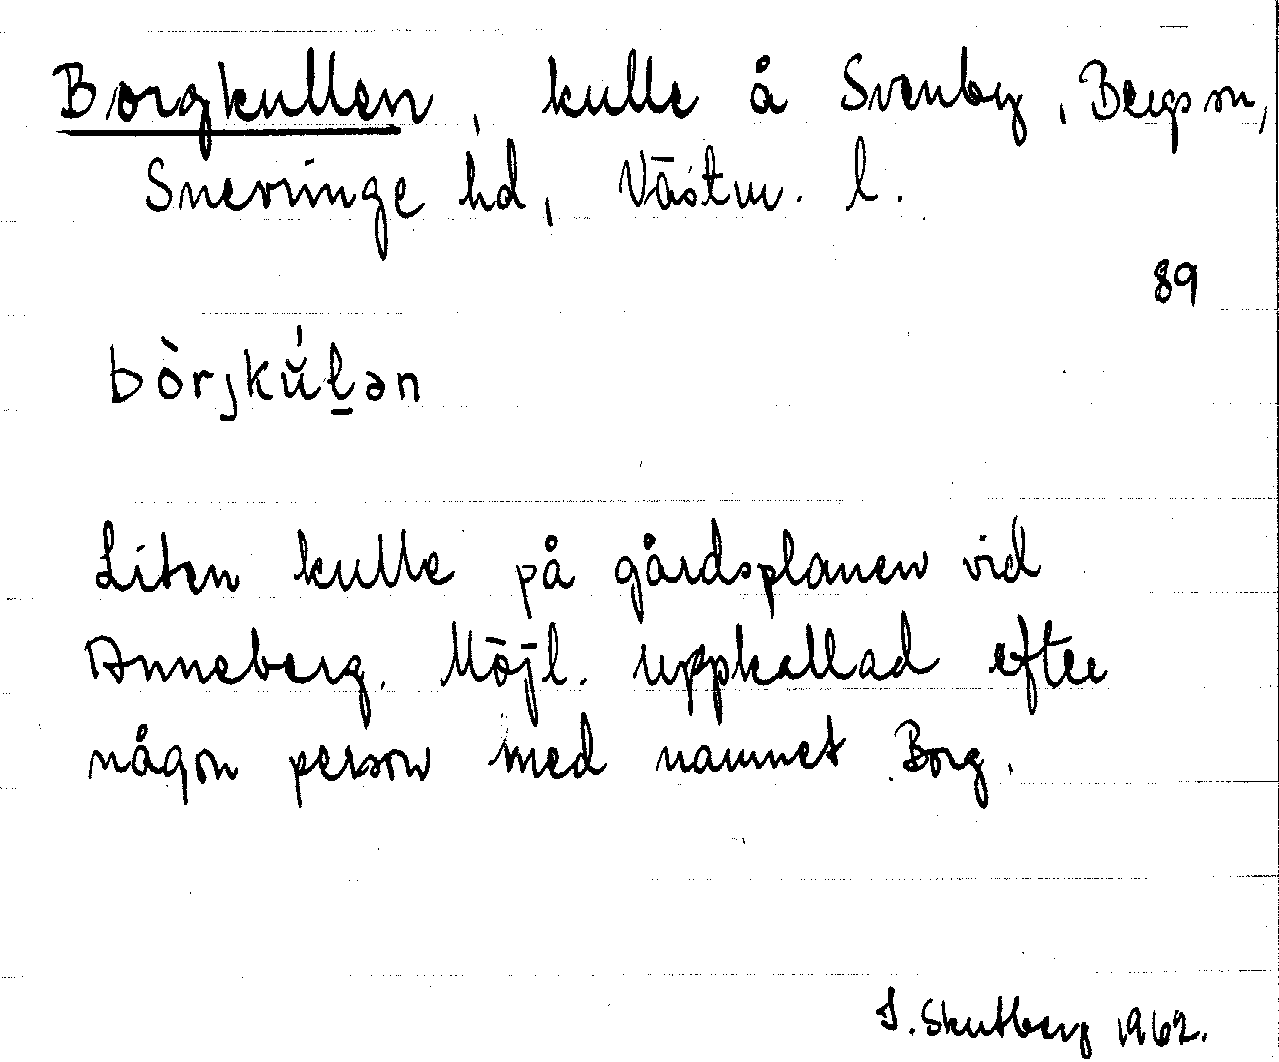 Borgkullen, kulle å Svenby, Bergs sn,
Snevringe hd, Västm. l.
89
bòrjkú̆l̠ən
Liten kulle på gårdsplanen vid
Anneberg. Möjl. uppkallad efter
någon person med namnet Borg.
I. Skutberg 1962.